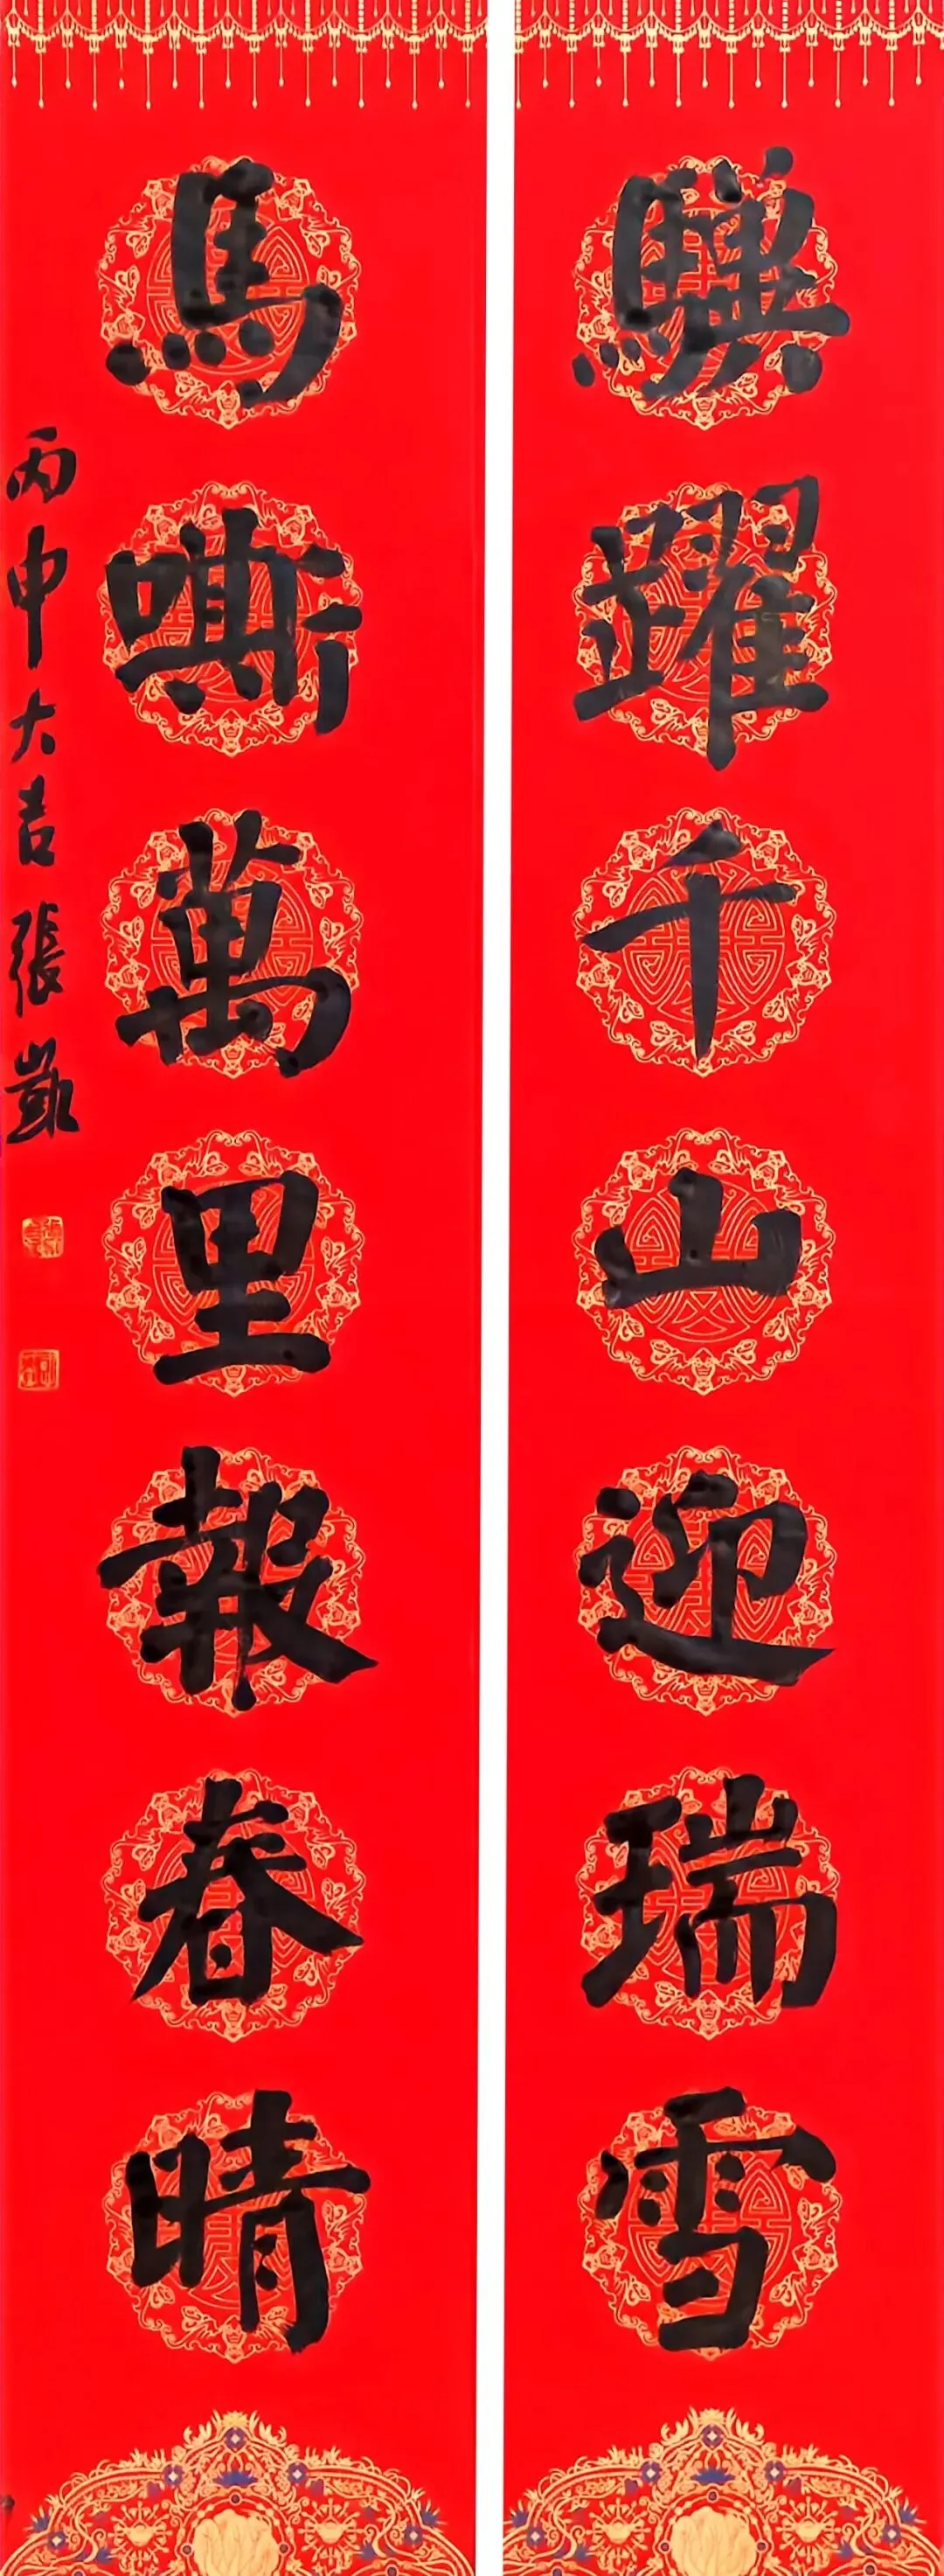 驥躍千山迎瑞雪
馬嘶萬里報春晴
丙申大吉張凱